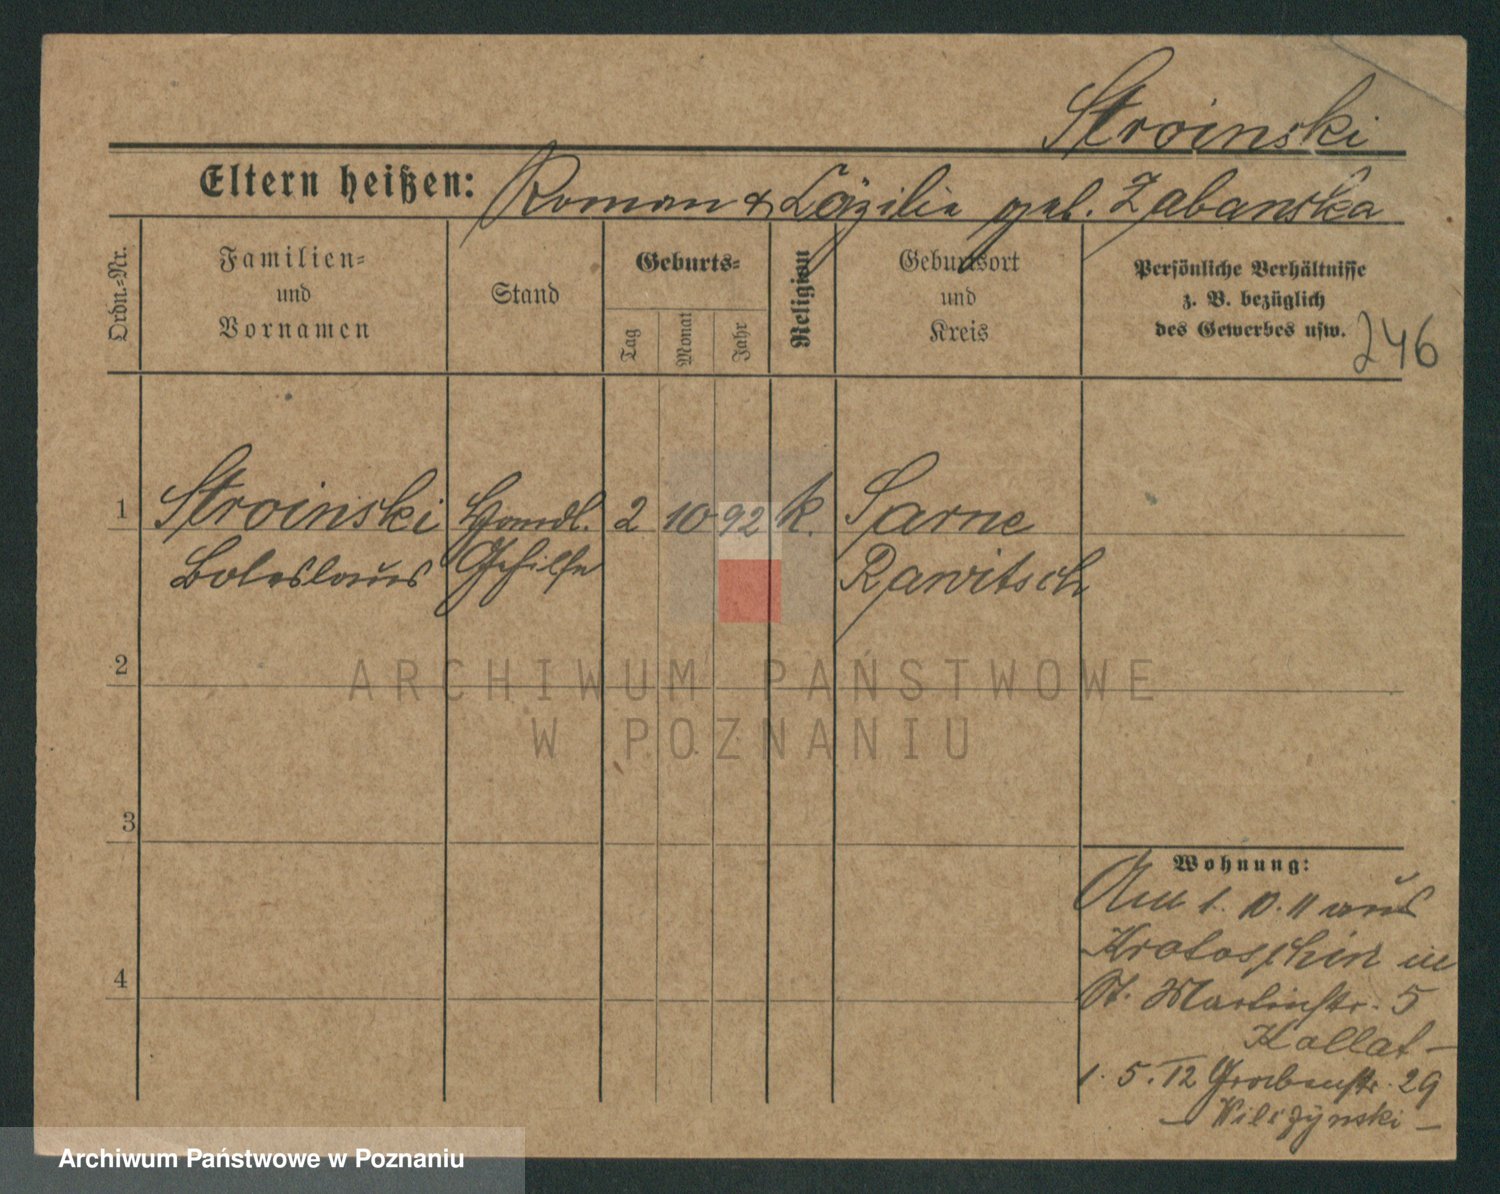 Stroinski
Eltern heißen: Roman & Cäzilie geb. Zabanska
Ordn.-Nr.
Familien-
und
Vornamen
Stand
Geburts-
Tag
Monat
Jahr
Religion
Geburtsort
und
Kreis
Persönliche Verhältnisse
z. B. bezüglich
des Gewerbes usw.
246
1 Stroinski Handl. 2 10 92 k. Sarne
Boleslaus Gehilfe Rawitsch
2
3
4
Wohnung:
Am 1. 10. 11 aus
Krotoschin in
St. Martinstr. 5
Kollat -
1. 5. 12 Grabenstr. 29
- Wilczynski -
ARCHIWUM PAŃSTWOWE
W POZNANIU
Archiwum Państwowe w Poznaniu